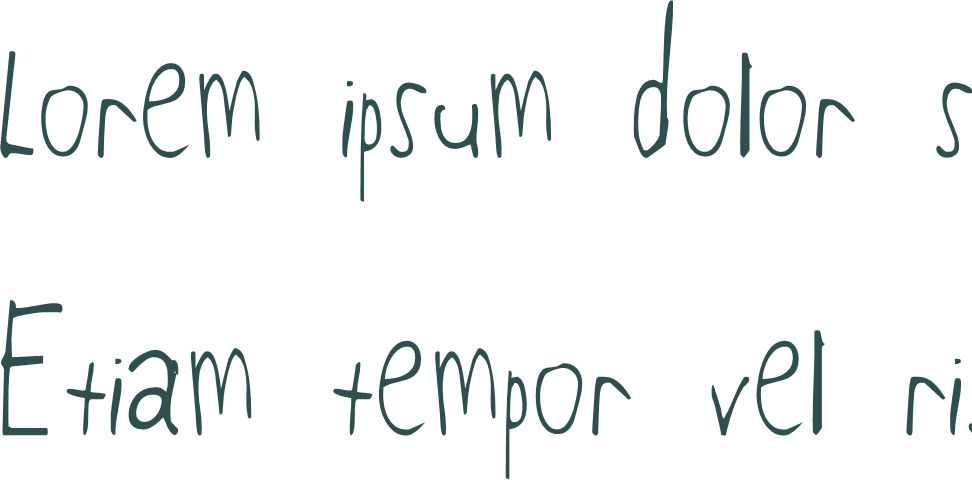 Lorem ipsum dolor s
Etiam tempor vel ri